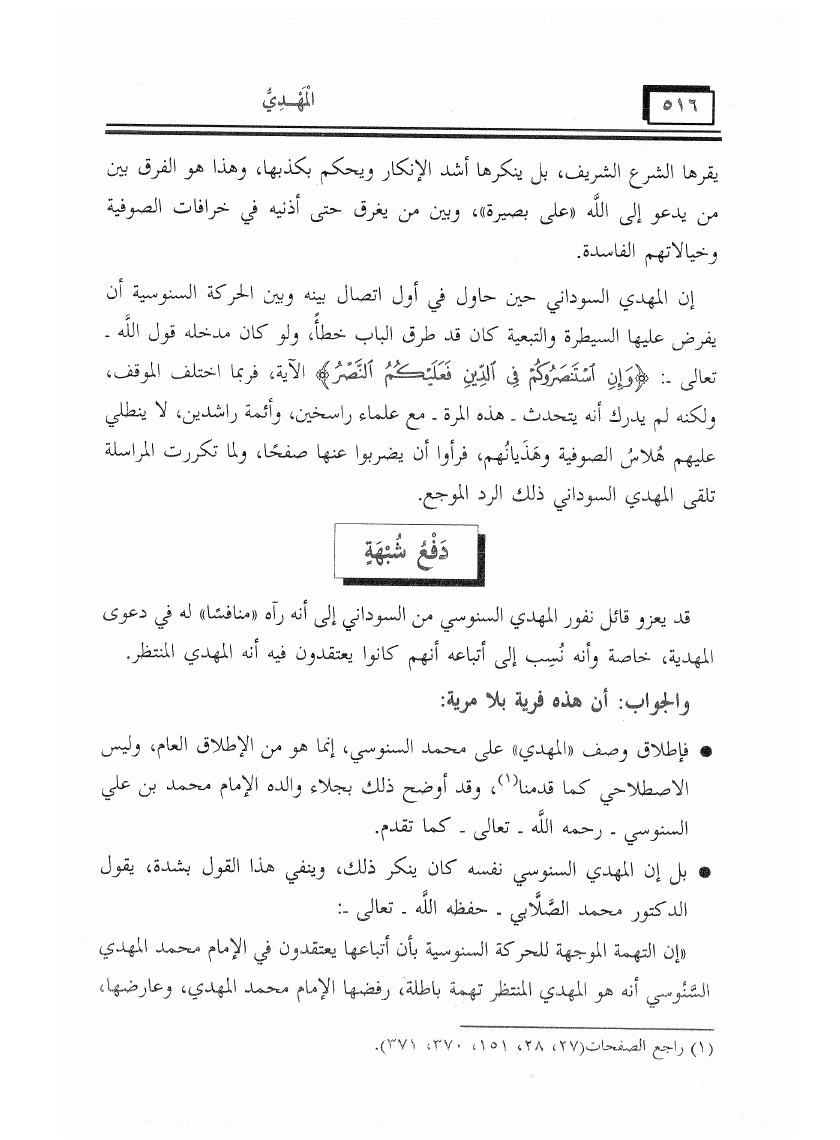 ٥١٦
الْمَهْـدِيُّ
يقرها الشرع الشريف، بل ينكرها أشد الإنكار ويحكم بكذبها، وهذا هو الفرق بين
من يدعو إلى اللَّه «على بصيرة»، وبين من يغرق حتى أذنيه في خرافات الصوفية
وخيالاتهم الفاسدة.
إن المهدي السوداني حين حاول في أول اتصال بينه وبين الحركة السنوسية أن
يفرض عليها السيطرة والتبعية كان قد طرق الباب خطأً، ولو كان مدخله قول اللَّه ـ
تعالى ـ: ﴿وَإِنِ ٱسْتَنصَرُوكُمْ فِى ٱلدِّينِ فَعَلَيْكُمُ ٱلنَّصْرُ﴾ الآية، فربما اختلف الموقف،
ولكنه لم يدرك أنه يتحدث ـ هذه المرة ـ مع علماء راسخين، وأئمة راشدين، لا ينطلي
عليهم هُلاسُ الصوفية وهَذَيانُهم، فرأوا أن يضربوا عنها صفحًا، ولما تكررت المراسلة
تلقى المهدي السوداني ذلك الرد الموجع.
دَفْعُ شُبْهَةٍ
قد يعزو قائل نفور المهدي السنوسي من السوداني إلى أنه رآه «منافسًا» له في دعوى
المهدية، خاصة وأنه نُسِب إلى أتباعه أنهم كانوا يعتقدون فيه أنه المهدي المنتظر.
والجواب: أن هذه فرية بلا مرية:
● فإطلاق وصف «المهدي» على محمد السنوسي، إنما هو من الإطلاق العام، وليس
الاصطلاحي كما قدمنا(١)، وقد أوضح ذلك بجلاء والده الإمام محمد بن علي
السنوسي ـ رحمه اللَّه ـ تعالى ـ كما تقدم.
● بل إن المهدي السنوسي نفسه كان ينكر ذلك، وينفي هذا القول بشدة، يقول
الدكتور محمد الصَّلَّابي ـ حفظه اللَّه ـ تعالى ـ:
«إن التهمة الموجهة للحركة السنوسية بأن أتباعها يعتقدون في الإمام محمد المهدي
السَّنُوسي أنه هو المهدي المنتظر تهمة باطلة، رفضها الإمام محمد المهدي، وعارضها،
(١) راجع الصفحات(٢٧، ٢٨، ١٥١، ٣٧٠، ٣٧١).